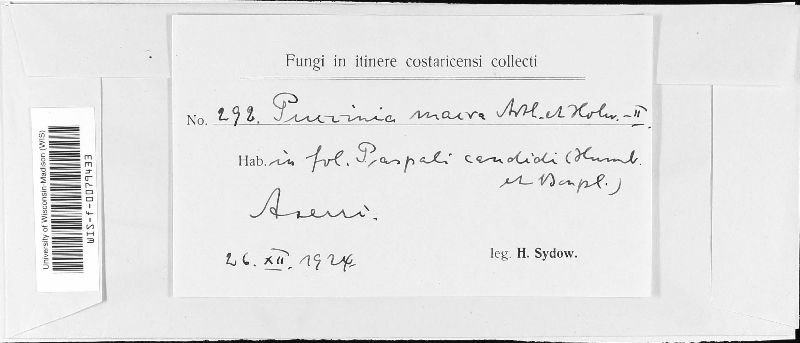 Fungi in itinere costaricensi collecti
No. 292. Puccinia macra Arth. et Holw. - II.
Hab. in fol. Paspali candidi (Humb.
et Bonpl.)
Aserri.
26. XII. 1924
leg. H. Sydow.
University of Wisconsin-Madison (WIS)
WIS-f-0079433